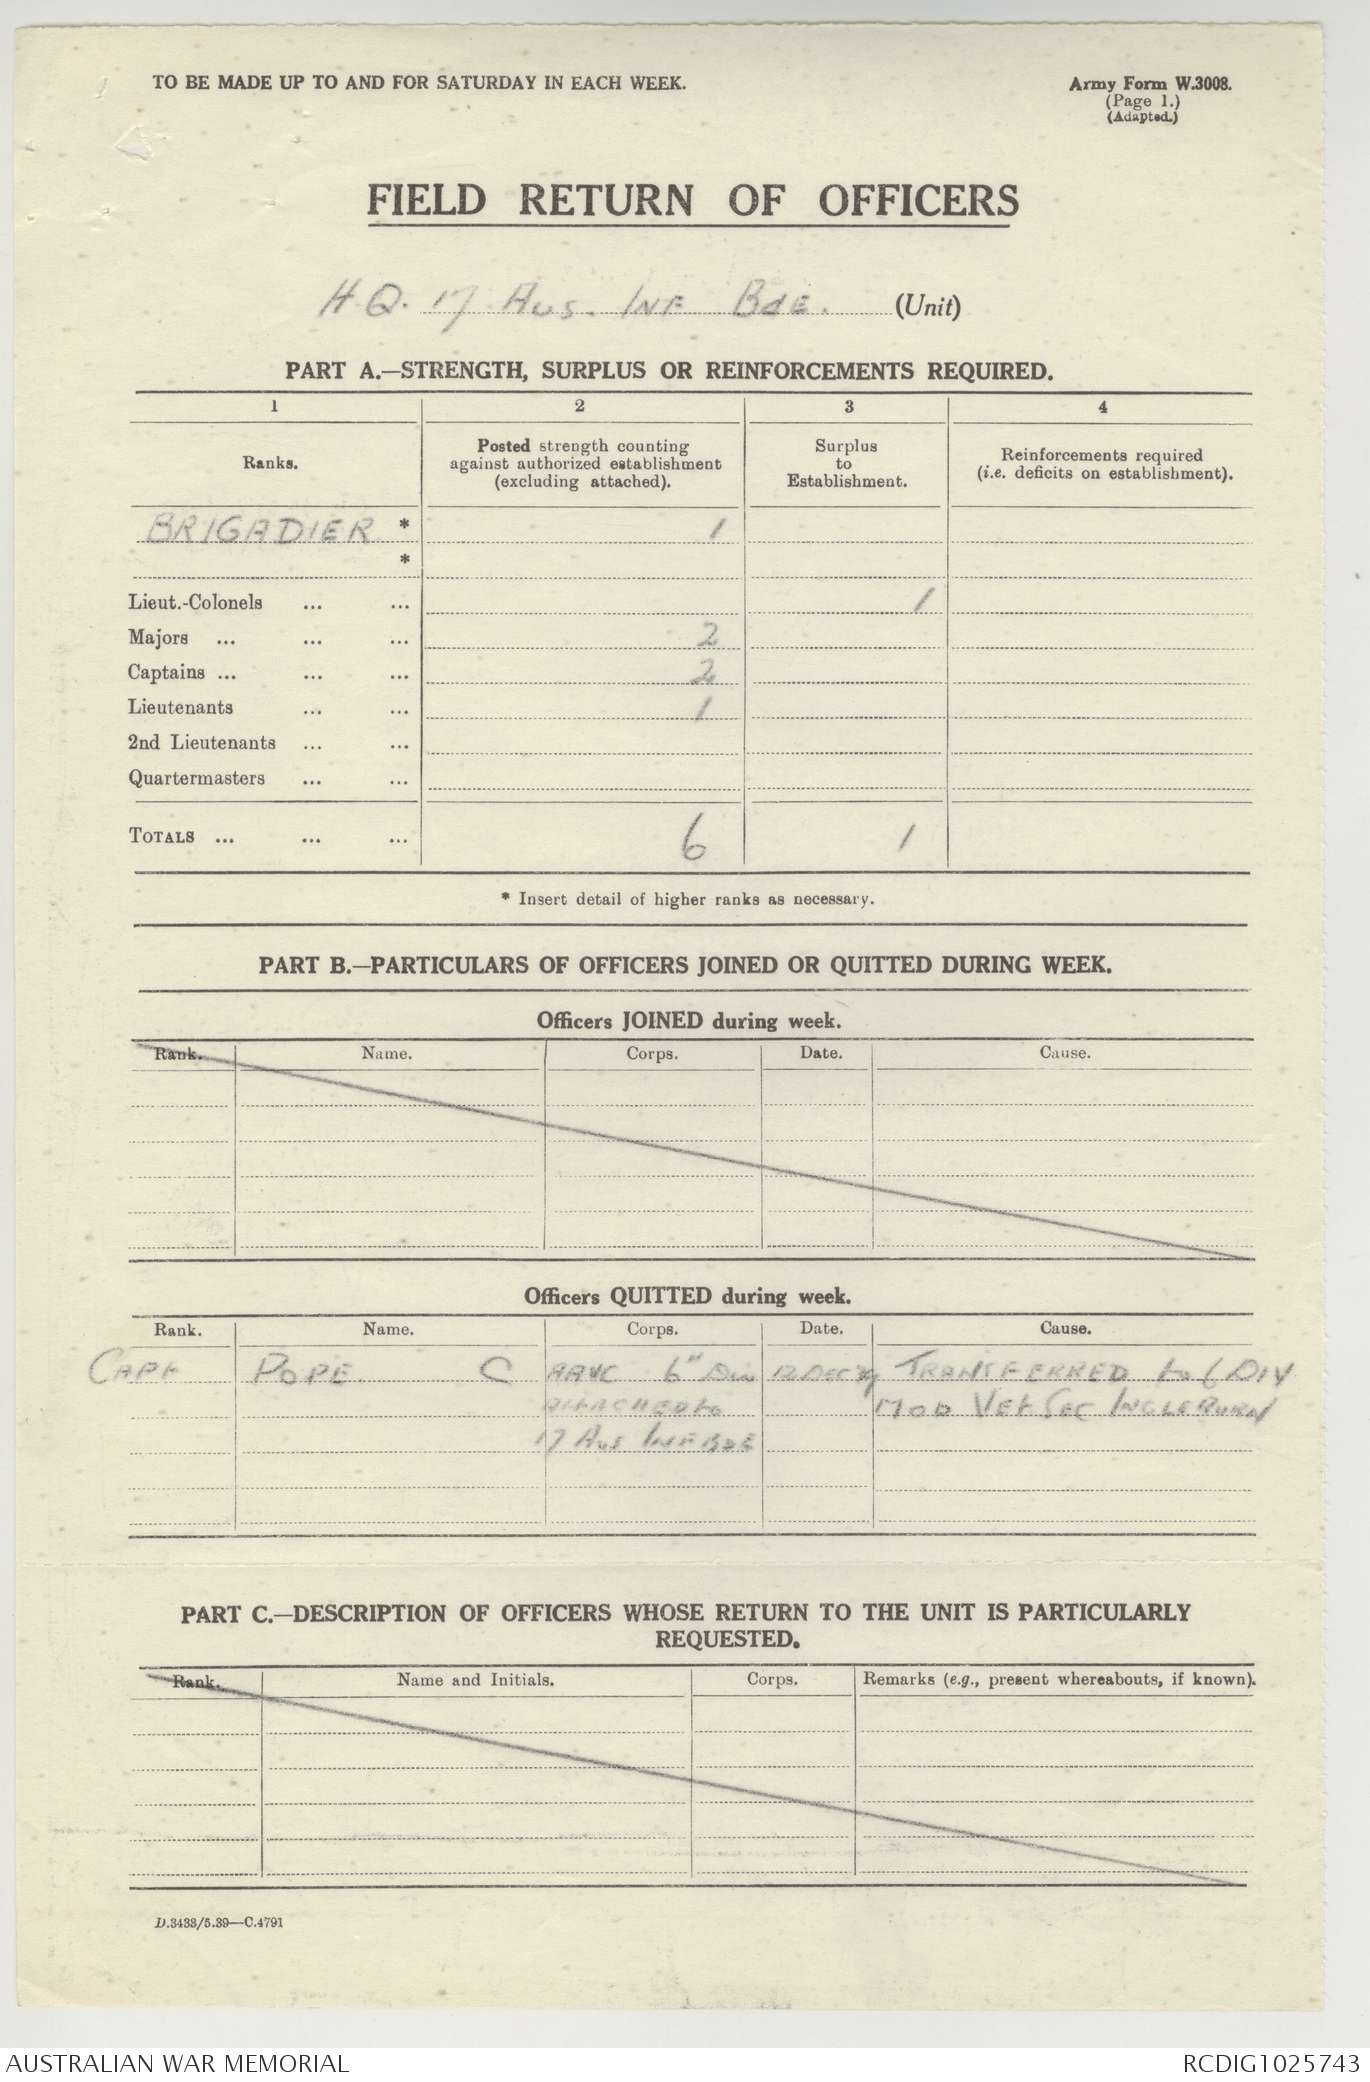 TO BE MADE UP TO AND FOR SATURDAY IN EACH WEEK.
Army Form W.3008.
(Page 1.)
(Adapted.)
FIELD RETURN OF OFFICERS
H.Q. 17 Aus. INF Bde. (Unit)
PART A.—STRENGTH, SURPLUS OR REINFORCEMENTS REQUIRED.
1 2 3 4
Ranks.
Posted strength counting against authorized establishment (excluding attached).
Surplus to Establishment.
Reinforcements required (i.e. deficits on establishment).
BRIGADIER * 1
*
Lieut.-Colonels ... ... 1
Majors ... ... ... 2
Captains ... ... ... 2
Lieutenants ... ... 1
2nd Lieutenants ... ...
Quartermasters ... ...
TOTALS ... ... ... 6 1
* Insert detail of higher ranks as necessary.
PART B.—PARTICULARS OF OFFICERS JOINED OR QUITTED DURING WEEK.
Officers JOINED during week.
Rank. Name. Corps. Date. Cause.
Officers QUITTED during week.
Rank. Name. Corps. Date. Cause.
CAPT POPE C AAVC 6" Div 12 DEC 39 TRANSFERRED to 6 DIV
ATTACHED to MOD VET SEC INGLEBURN
17 Aus INF BDE
PART C.—DESCRIPTION OF OFFICERS WHOSE RETURN TO THE UNIT IS PARTICULARLY
REQUESTED.
Rank. Name and Initials. Corps. Remarks (e.g., present whereabouts, if known).
D.3433/5.39—C.4791
AUSTRALIAN WAR MEMORIAL
RCDIG1025743